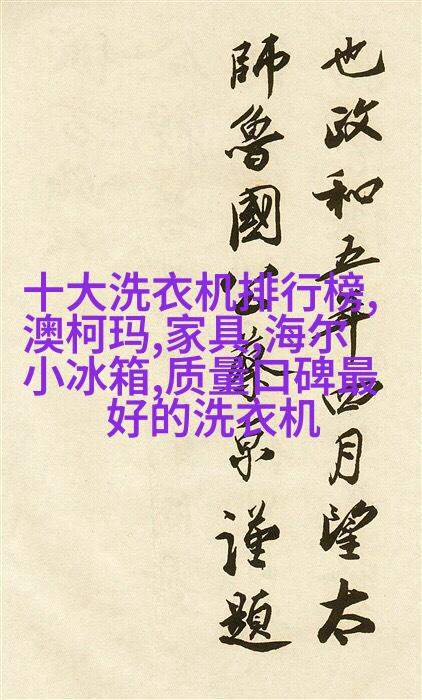 也政和五年四月望太
師魯國公蔡京謹題
十大洗衣机排行榜,
澳柯玛,家具,海尔
小冰箱,质量口碑最
好的洗衣机